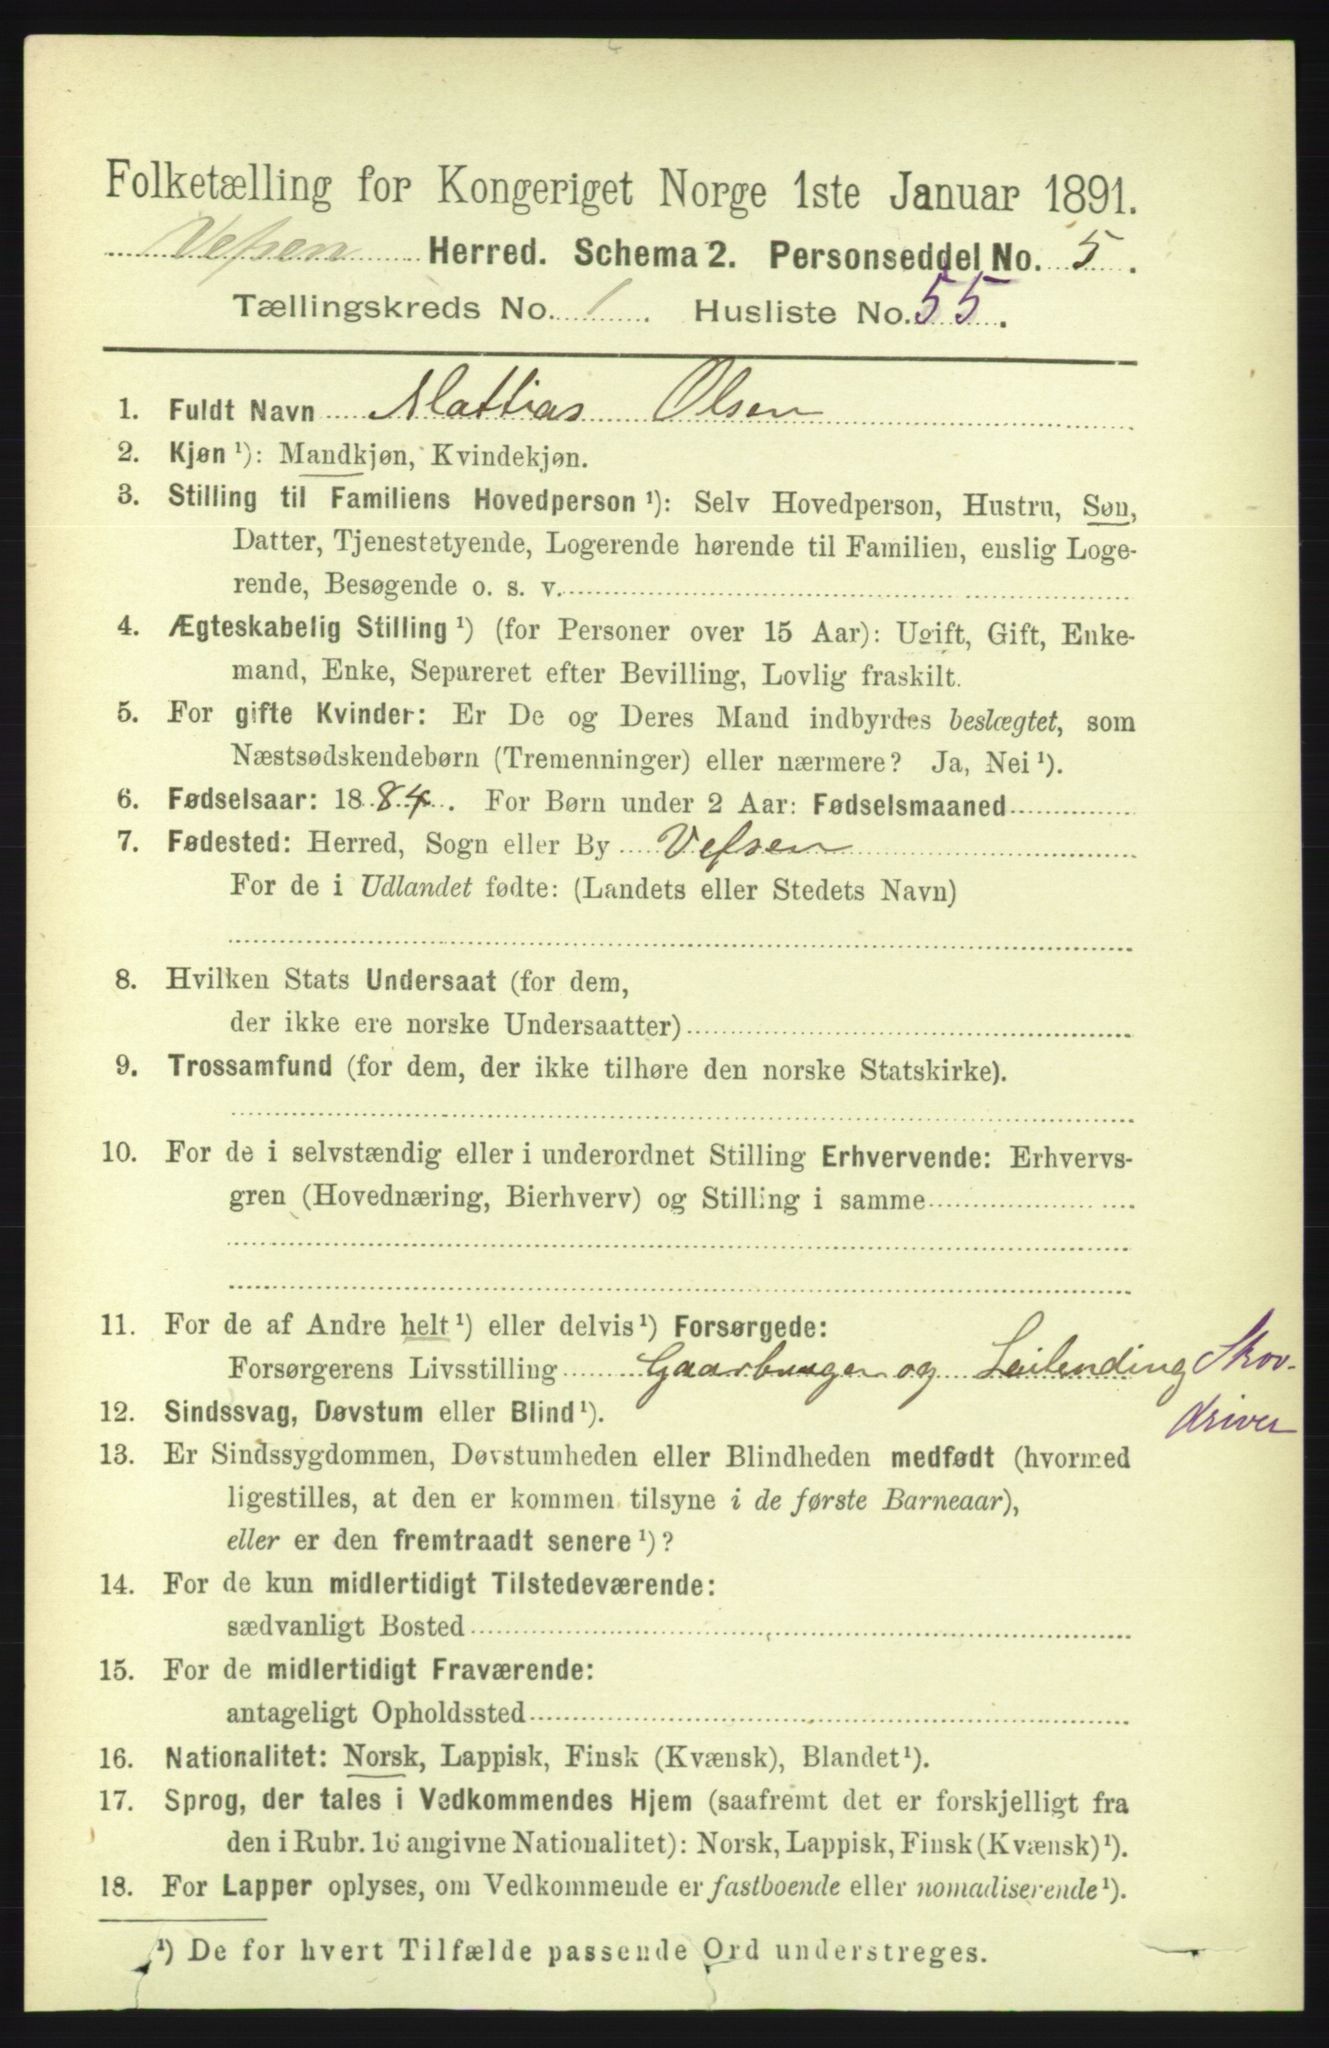 Folketælling for Kongeriget Norge 1ste Januar 1891.
Vefsen Herred. Schema 2. Personseddel No. 5.
Tællingskreds No. 1. Husliste No. 55.
1. Fuldt Navn Mattias Olsen
2. Kjøn ¹): Mandkjøn, Kvindekjøn.
3. Stilling til Familiens Hovedperson ¹): Selv Hovedperson, Hustru, Søn,
Datter, Tjenestetyende, Logerende hørende til Familien, enslig Loge-
rende, Besøgende o. s. v.
4. Ægteskabelig Stilling ¹) (for Personer over 15 Aar): Ugift, Gift, Enke-
mand, Enke, Separeret efter Bevilling, Lovlig fraskilt.
5. For gifte Kvinder: Er De og Deres Mand indbyrdes beslægtet, som
Næstsødskendebørn (Tremenninger) eller nærmere? Ja, Nei ¹).
6. Fødselsaar: 1884. For Børn under 2 Aar: Fødselsmaaned
7. Fødested: Herred, Sogn eller By Vefsen
For de i Udlandet fødte: (Landets eller Stedets Navn)
8. Hvilken Stats Undersaat (for dem,
der ikke ere norske Undersaatter)
9. Trossamfund (for dem, der ikke tilhøre den norske Statskirke).
10. For de i selvstændig eller i underordnet Stilling Erhvervende: Erhvervs-
gren (Hovednæring, Bierhverv) og Stilling i samme
11. For de af Andre helt ¹) eller delvis ¹) Forsørgede:
Forsørgerens Livsstilling Gaarbruger og Leilending Skov-
driver
12. Sindssvag, Døvstum eller Blind ¹).
13. Er Sindssygdommen, Døvstumheden eller Blindheden medfødt (hvormed
ligestilles, at den er kommen tilsyne i de første Barneaar),
eller er den fremtraadt senere ¹)?
14. For de kun midlertidigt Tilstedeværende:
sædvanligt Bosted
15. For de midlertidigt Fraværende:
antageligt Opholdssted
16. Nationalitet: Norsk, Lappisk, Finsk (Kvænsk), Blandet ¹).
17. Sprog, der tales i Vedkommendes Hjem (saafremt det er forskjelligt fra
den i Rubr. 16 angivne Nationalitet): Norsk, Lappisk, Finsk (Kvænsk) ¹).
18. For Lapper oplyses, om Vedkommende er fastboende eller nomadiserende ¹).
¹) De for hvert Tilfælde passende Ord understreges.